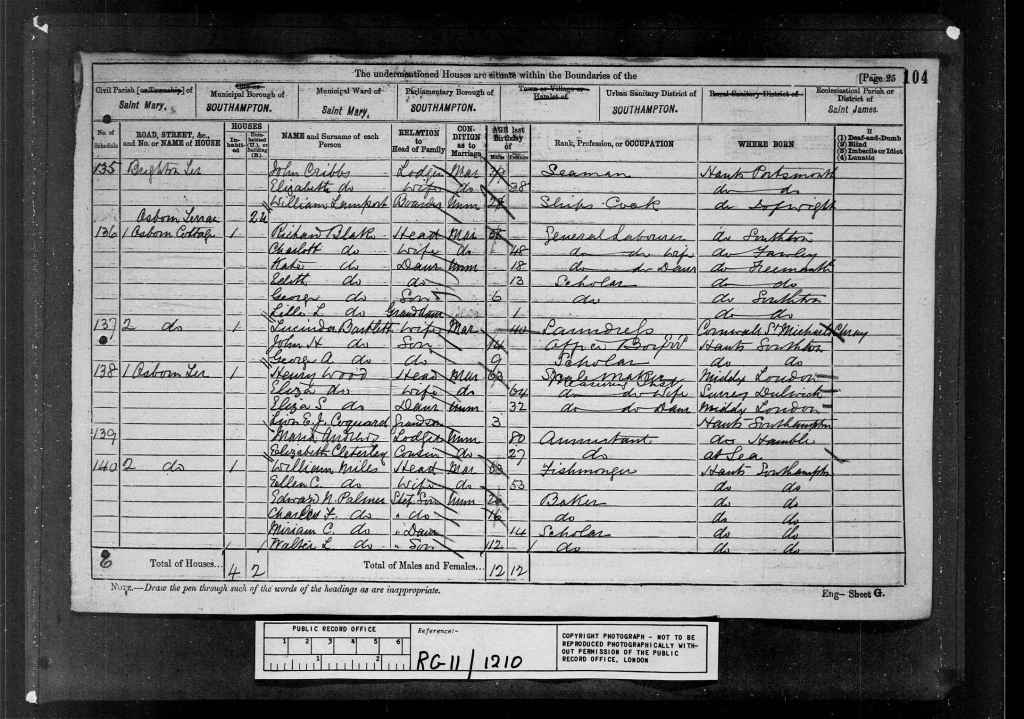 The undermentioned Houses are situate within the Boundaries of the
[Page 25
104
Civil Parish [or Township] of
Saint Mary,
City or
Municipal Borough of
SOUTHAMPTON.
Municipal Ward of
Saint Mary,
Parliamentary Borough of
SOUTHAMPTON.
Town or Village or
Hamlet of
Urban Sanitary District of
SOUTHAMPTON.
Rural Sanitary District of
Ecclesiastical Parish or
District of
Saint James.
No. of Schedule
ROAD, STREET, &c., and No. or NAME of HOUSE
HOUSES
Inhabited
Uninhabited (U.), or Building (B.)
NAME and Surname of each Person
RELATION to Head of Family
CONDITION as to Marriage
AGE last Birthday of
Males
Females
Rank, Profession, or OCCUPATION
WHERE BORN
If
(1) Deaf-and-Dumb
(2) Blind
(3) Imbecile or Idiot
(4) Lunatic
135 Brighton Ter John Cribbs Lodger Mar Seaman Hants Portsmouth
Elizabeth do Wife do 28 do do
William Lamport Boarder Unm Ships Cook do
Osborn Terrace 2u
136 1 Osborn Cottage 1 Richard Blake Head Mar General Labourer do Southton
Charlott do Wife do 48 do do Wife do Fawley
Kate do Daur Unm 18 do do Daur do Freemantle
Edith do do 13 Scholar do do
George do Son 6 do do Southton
Lilly L do Grandaur 1 do do
137 2 do 1 Lucinda Bartlett Wife Mar 40 Laundress Cornwall St Michaels
John H do Son 14 Office Boy Hants Southton
George A do do 9 Scholar do do
138 1 Osborn Ter 1 Henry Wood Head Mar 63 Maker Middx London
Eliza do Wife do 64 do do Wife Surrey Dulwich
Eliza S. do Daur Unm 32 do do Daur Middx London
Leon E. J. Coquard Grandson 3 Hants Southampton
139 Maria Andrews Lodger Unm 80 Annuitant do Hamble
Elizabeth Cleverley Cousin do 27 do at Sea
140 2 do 1 William Miles Head Mar Fishmonger Hants Southampton
Ellen C. do Wife do 53 do do
Edward N Palmer Step Son Unm 20 Baker do do
Charles F. do " do 16 do do do
Miriam C. do " Daur 14 Scholar do do
Walter L do " Son 12 do do do
Total of Houses... 4 2
Total of Males and Females... 12 12
NOTE.—Draw the pen through such of the words of the headings as are inappropriate.
Eng—Sheet G.
PUBLIC RECORD OFFICE
1 2 3 4 5 6
1 2
Reference:-
RG 11 / 1210
COPYRIGHT PHOTOGRAPH - NOT TO BE
REPRODUCED PHOTOGRAPHICALLY WITH-
OUT PERMISSION OF THE PUBLIC
RECORD OFFICE, LONDON